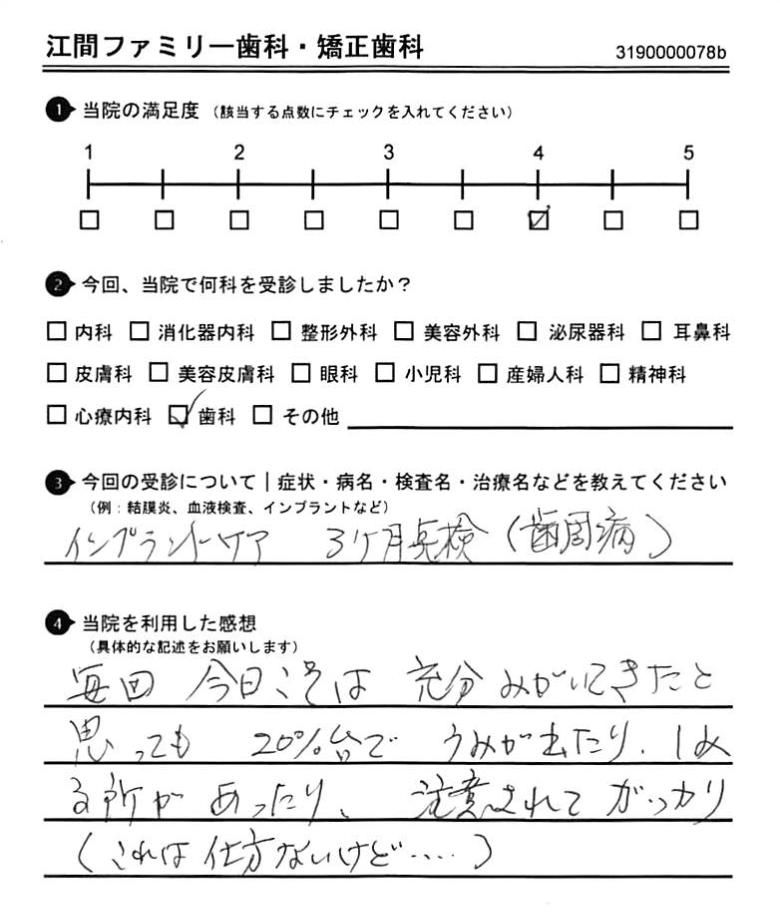 江間ファミリー歯科・矯正歯科 3190000078b
1 当院の満足度 （該当する点数にチェックを入れてください）
1 2 3 4 5
2 今回、当院で何科を受診しましたか？
内科 消化器内科 整形外科 美容外科 泌尿器科 耳鼻科
皮膚科 美容皮膚科 眼科 小児科 産婦人科 精神科
心療内科 歯科 その他
3 今回の受診について｜症状・病名・検査名・治療名などを教えてください
（例：結膜炎、血液検査、インプラントなど）
インプラントケア 3ケ月点検（歯周病）
4 当院を利用した感想
（具体的な記述をお願いします）
毎回 今日こそは 充分みがいてきたと
思っても 20%台で うみが出たり、しみ
る所が あったり、 注意されて がっかり
（これは仕方ないけど‥‥）